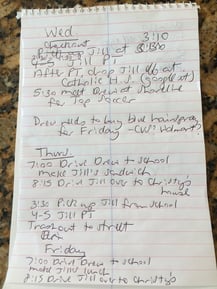 Wed 3:10
Checkout
Pick up Jill at
4-5 Jill PT
After PT, drop Jill off at
Catholic H.S. (people at)
5:30 meet Drew at
for Top Soccer
Drew needs to buy blue hairspray
for Friday - CVS? Walmart?
Thurs
7:00 Drive Drew to school
make Jill's sandwich
8:15 Drive Jill over to Christy's
house
3:30 Pick up Jill from school
4-5 Jill PT
Trash out to street
Friday
7:00 Drive Drew to school
make Jill's lunch
8:15 Drive Jill over to Christy's